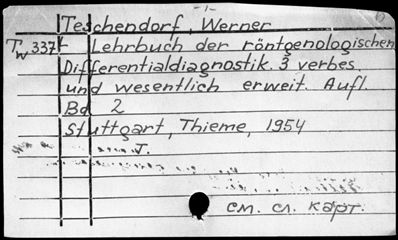 -1-
Teschendorf, Werner
Tw 337 Lehrbuch der röntgenologischen
Differentialdiagnostik. 3 verbes
und wesentlich erweit. Aufl.
Bd 2
Stuttgart, Thieme, 1954
T.
см. сл. карт.